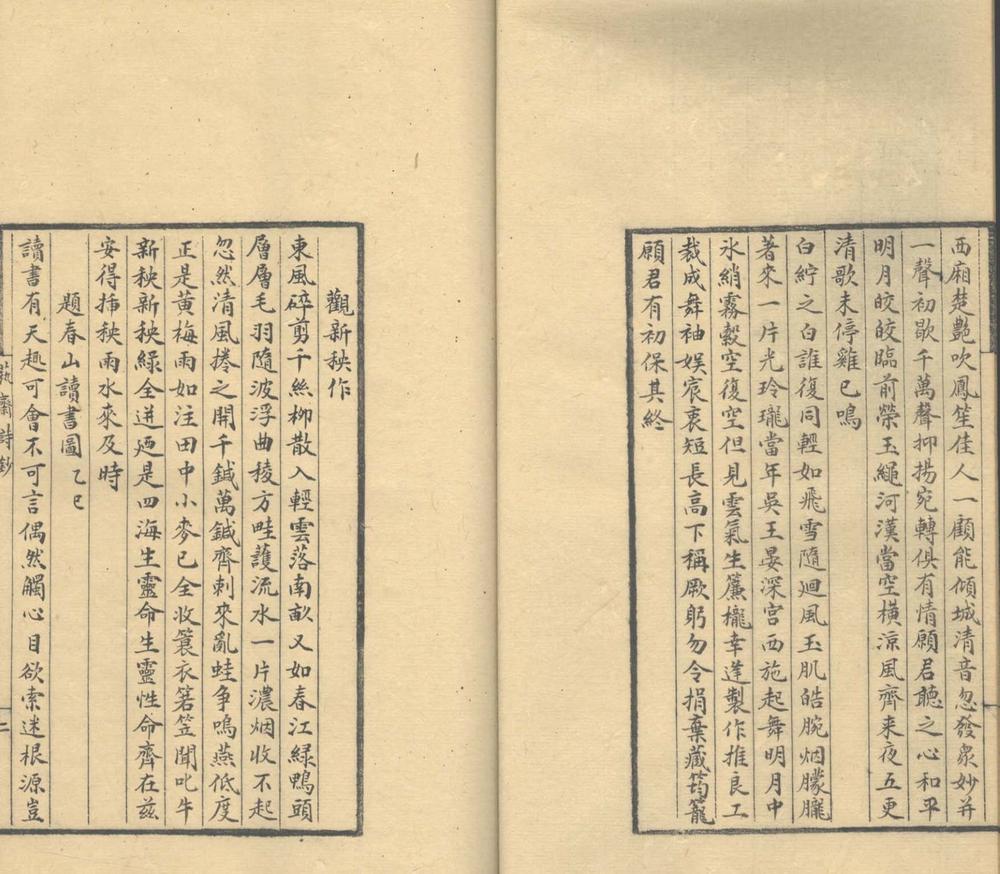 西廂楚艷吹鳳笙佳人一顧能傾城清音忽發衆妙并
一聲初歇千萬聲抑揚宛轉俱有情願君聽之心和平
明月皎皎臨前榮玉繩河漢當空橫涼風齊来夜五更
清歌未停雞已鳴
白紵之白誰復同輕如飛雪隨迴風玉肌皓腕烟朦朧
著來一片光玲瓏當年吳王晏深宫西施起舞明月中
氷綃霧縠空復空但見雲氣生簾櫳幸逢製作推良工
裁成舞袖娱宸衷短長高下稱厥躬勿令捐棄藏筠籠
願君有初保其終
觀新秧作
東風碎剪千絲柳散入輕雲落南畝又如春江綠鴨頭
層層毛羽隨波浮曲稜方畦護流水一片濃烟收不起
忽然清風捲之開千鍼萬鍼齊刺來亂蛙争鳴燕低度
正是黄梅雨如注田中小麥已全收簑衣箬笠聞叱牛
新秧新秧綠全迸廼是四海生靈命生靈性命齊在兹
安得插秧雨水來及時
題春山讀書圖 乙巳
讀書有天趣可會不可言偶然觸心目欲索迷根源豈
齋詩鈔
二